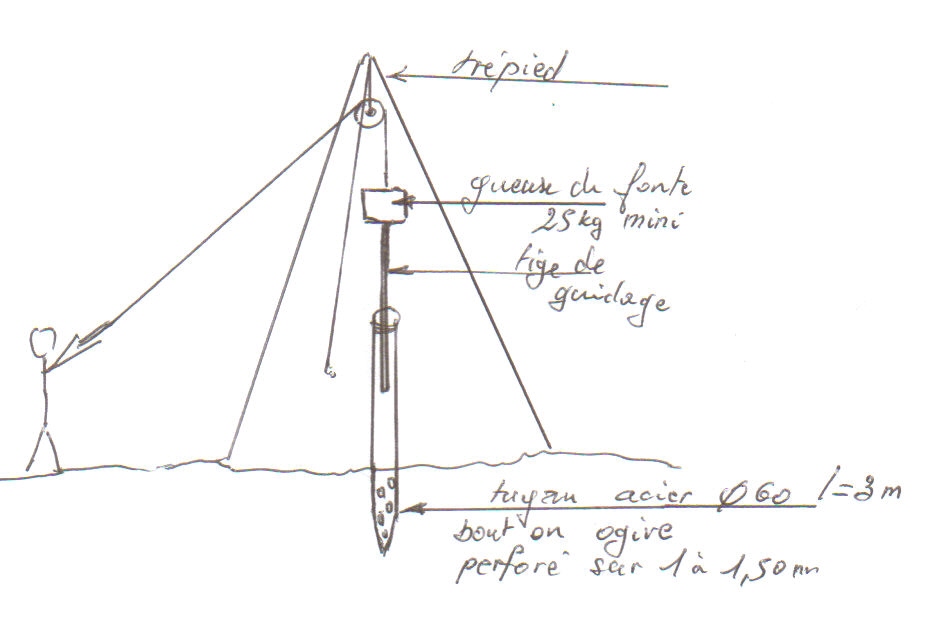 trépied
gueuse de fonte
25kg mini
tige de
guidage
tuyau acier Ø60 l=3m
bout en ogive
perforé sur 1 à 1,50 m